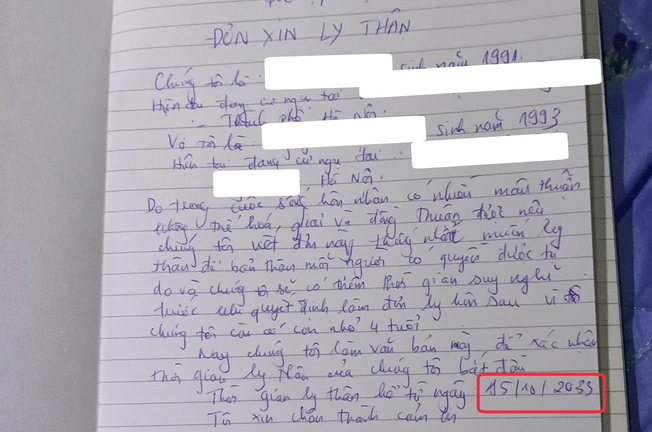 ĐƠN XIN LY THÂN
Chúng tôi là: sinh năm 1991.
Hiện tại đang cư ngụ tại
Thành phố Hà Nội.
Vợ tôi là: sinh năm 1993
Hiện tại đang cư ngụ tại:
Hà Nội.
Do trong cuộc sống hôn nhân có nhiều mâu thuẫn
không thể hóa giải và đồng thuận được nên
chúng tôi viết đơn này thống nhất muốn ly
thân để bản thân mỗi người có quyền được tự
do và chúng tôi sẽ có thêm thời gian suy nghĩ
trước khi quyết định làm đơn ly hôn sau vì
chúng tôi còn có con nhỏ 4 tuổi
Nay chúng tôi làm văn bản này để xác nhận
thời gian ly thân của chúng tôi bắt đầu
Thời gian ly thân kể từ ngày 15/10/2033
Tôi xin chân thành cảm ơn